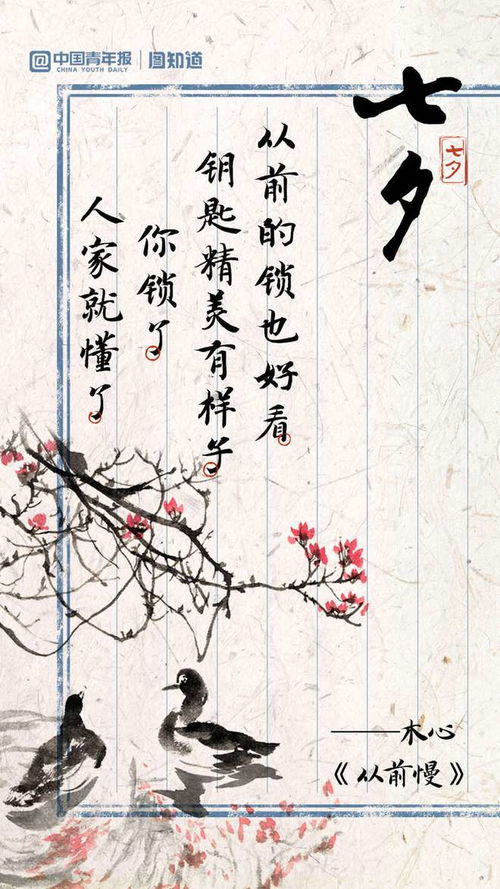 @中国青年报
CHINA YOUTH DAILY
图知道
七夕
七夕
从前的锁也好看
钥匙精美有样子
你锁了
人家就懂了
——木心
《从前慢》